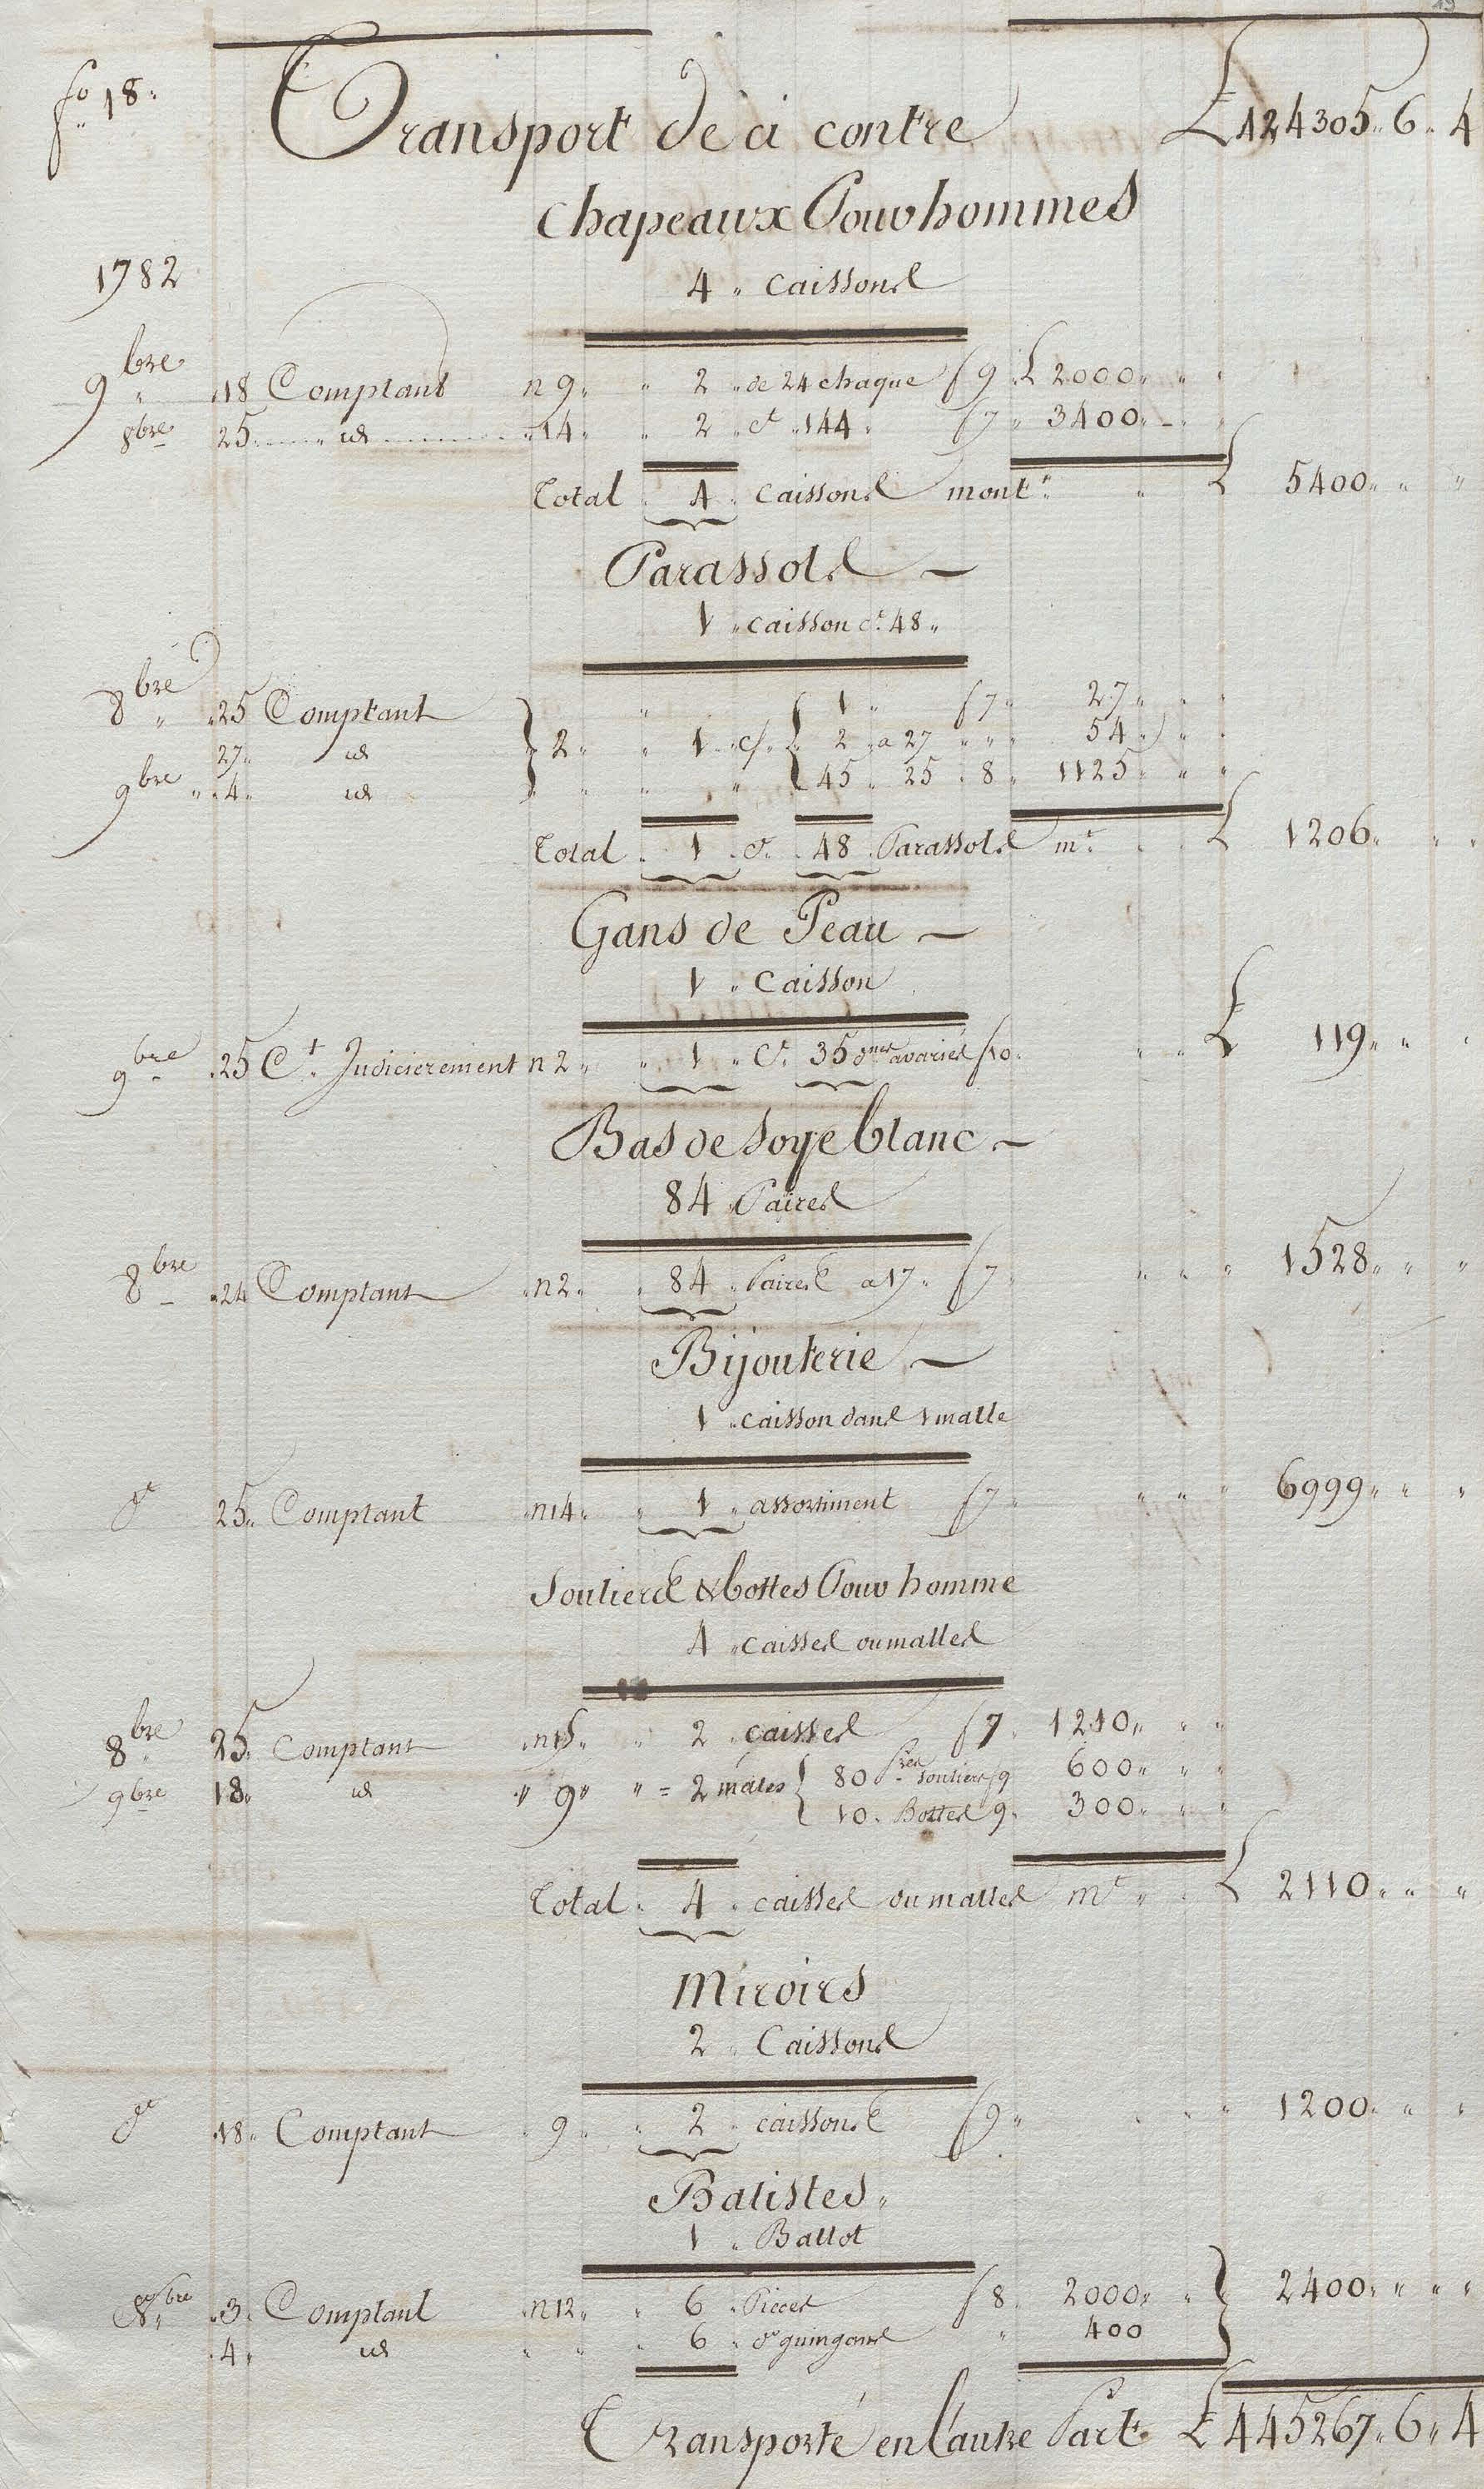 19
fo 18.
Transport de ci contre £ 424305 " 6 " 4
Chapeaux Pour hommes
1782
4 " caissons
9bre " 18 Comptant n 9 " " 2 " de 24 chaque f 9 £ 2000 " " "
8bre 25 " id " 14 " " 2 " ct 144 f 7 " 3400 " " "
Total " 4 " caissons montt " £ 5400 " " "
Parassols
1 " caisson ct 48 "
8bre " 25 Comptant " 1 " f 7 " 27 " " "
27 " id 2 " " 1 " c/ " 2 " a 27 " " " 54 " " "
9bre " 4 " id " " " 45 " 25 " 8 " 1125 " " "
Total " 1 " ct 48 Parassols mt £ 1206 " " "
Gans de Peau
1 " Caisson
9bre 25 Ct Judicierement n 2 " " 1 " Ct 35 dnes avariés f 10 " £ 119 " " "
Bas de Soye blanc
84 Paires
8bre 24 Comptant n 2 " " 84 Paires a 17 " f 7 " 1528 " " "
Bijouterie
1 " caisson dans 1 malle
do 25 " Comptant n 14 " " 1 " assortiment f 7 " 6999 " " "
Souliers & bottes Pour homme
4 " caisses ou malles
8bre " 25 Comptant n 15 " " 2 caisses f 7 " 1210 " " "
9bre 18 " id " 9 " " = 2 males 80 Pres souliers f 9 600 " " "
10 " Bottes 9 " 300 " " "
Total " 4 " caisses ou malles mt " £ 2110 " " "
Miroirs
2 " Caissons
do 18 " Comptant " 9 " " 2 " caissons f 9 " 1200 " " "
Batistes "
1 " Ballot
8bre 3 " Comptant n 12 " " 6 " Pieces f 8 " 2000 " " 2400 " " "
4 " id " " " 6 " do guingans " 400
Transporté en l'autre Part £ 445267 " 6 " 4